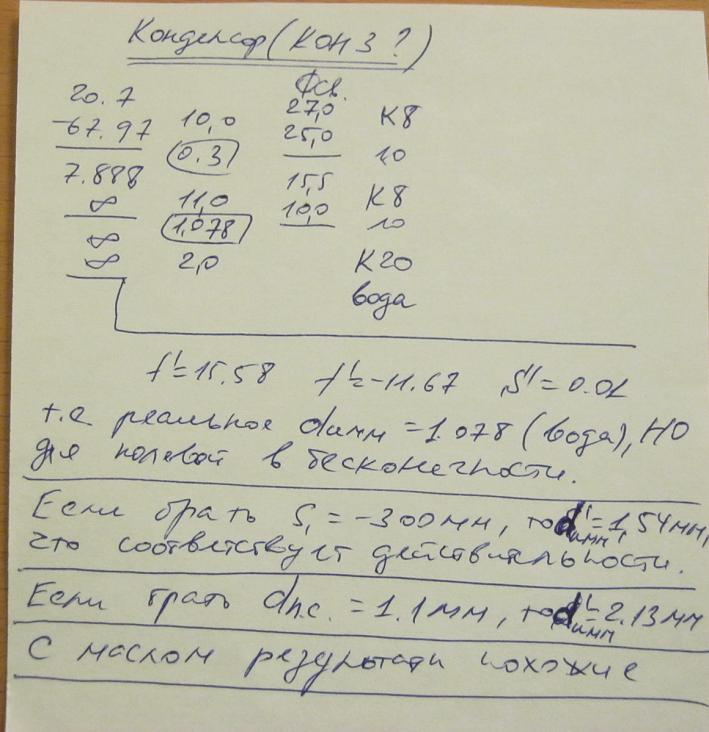 Конденсор (КОН 3?)
Фсв.
20.7 27,0
-67.97 10,0 25,0 К8
0.3 10
7.888 15,5
∞ 11,0 10,0 К8
1,078 10
∞
∞ 2,0 К20
вода
f'=15.58 f'=-11.67 S'=0.01
т.е. реальное dимм =1.078 (вода), НО
для полевой в бесконечности.
Если брать S₁ = -300мм, то d'имм=1,54мм,
что соответствует действительности.
Если брать dп.с. = 1.1мм, то d'имм=2.13мм
С маслом результаты похожие